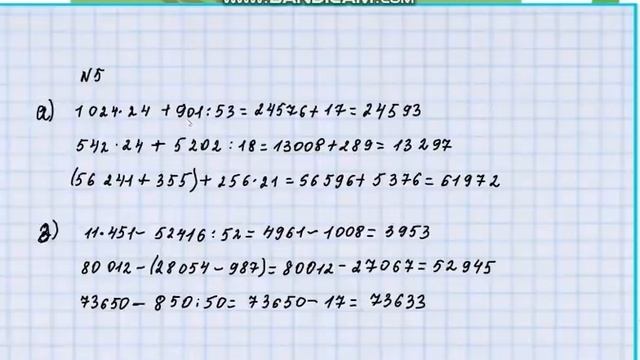 WWW.BANDICAM.COM
N5
а) 1 024·24 + 901:53 = 24576+17 = 24593
542·24 + 5202:18 = 13008+289 = 13 297
(56 241 + 355) + 256·21 = 56596 + 5376 = 61972
в) 11·451 - 52416:52 = 4961 - 1008 = 3953
80 012 - (28054 - 987) = 80012 - 27067 = 52945
73650 - 850:50 = 73650 - 17 = 73633